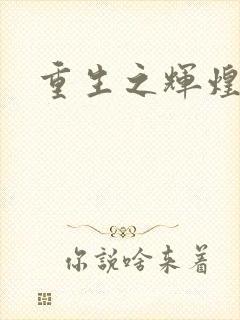 重生之輝煌
你說啥来着